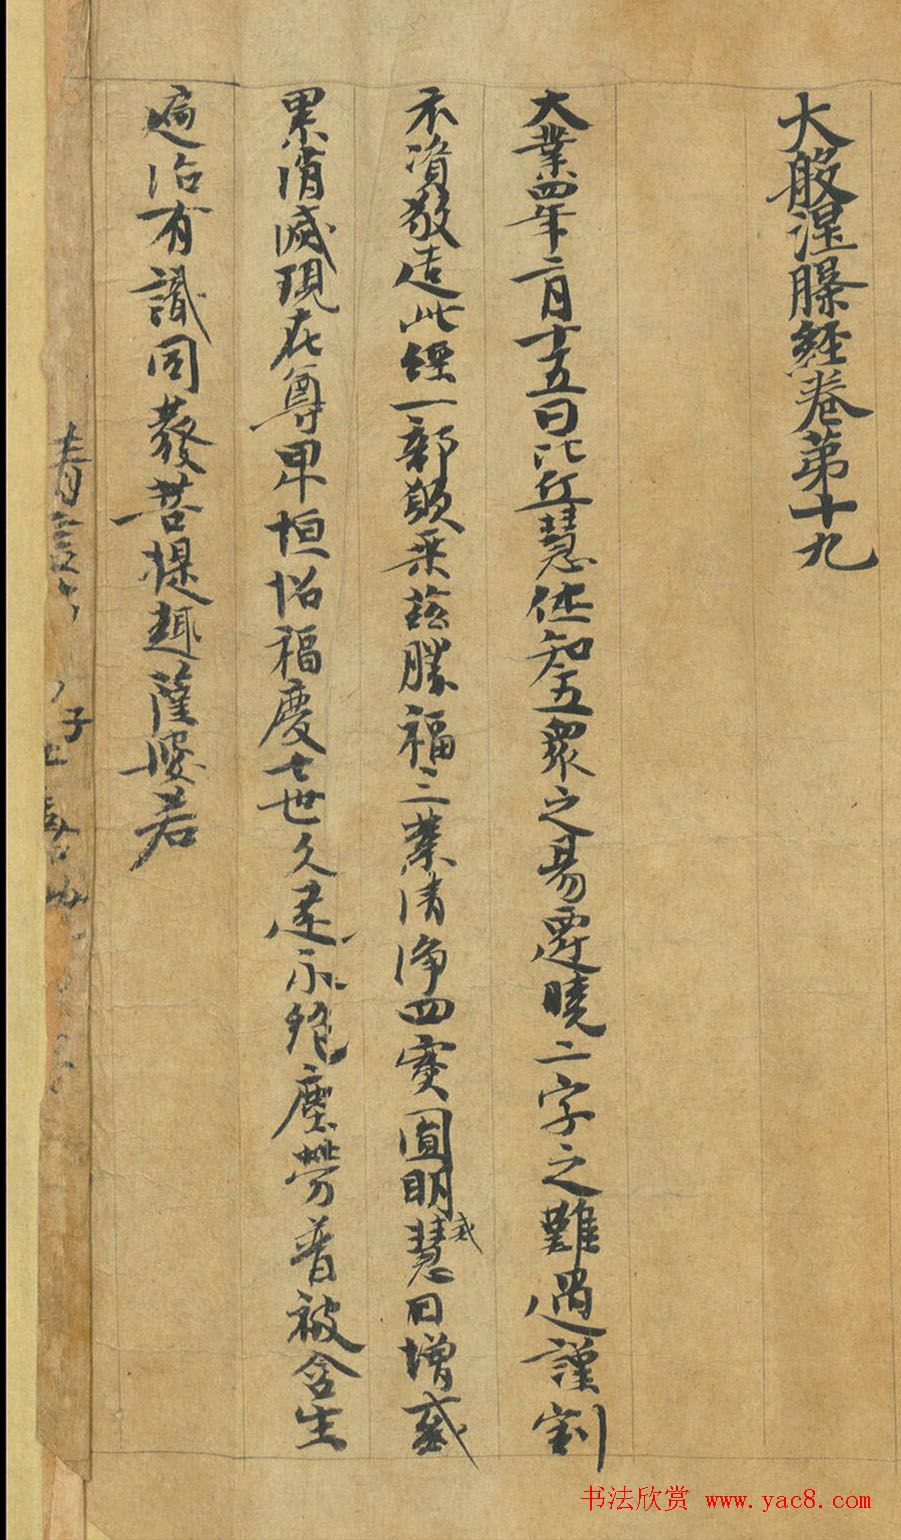 大般涅槃経卷第十九
大業四年二月十五日比丘慧休知五衆之易遷曉二字之難遇謹割
衣資敬造此經一部願乗茲勝福三業清淨四實圓明慧日增惑
累消滅現在尊卑恒招福慶七世久遠永絶塵勞普被含生
遍沾有識同發菩提趣薩婆若
书法欣赏 www.yac8.com